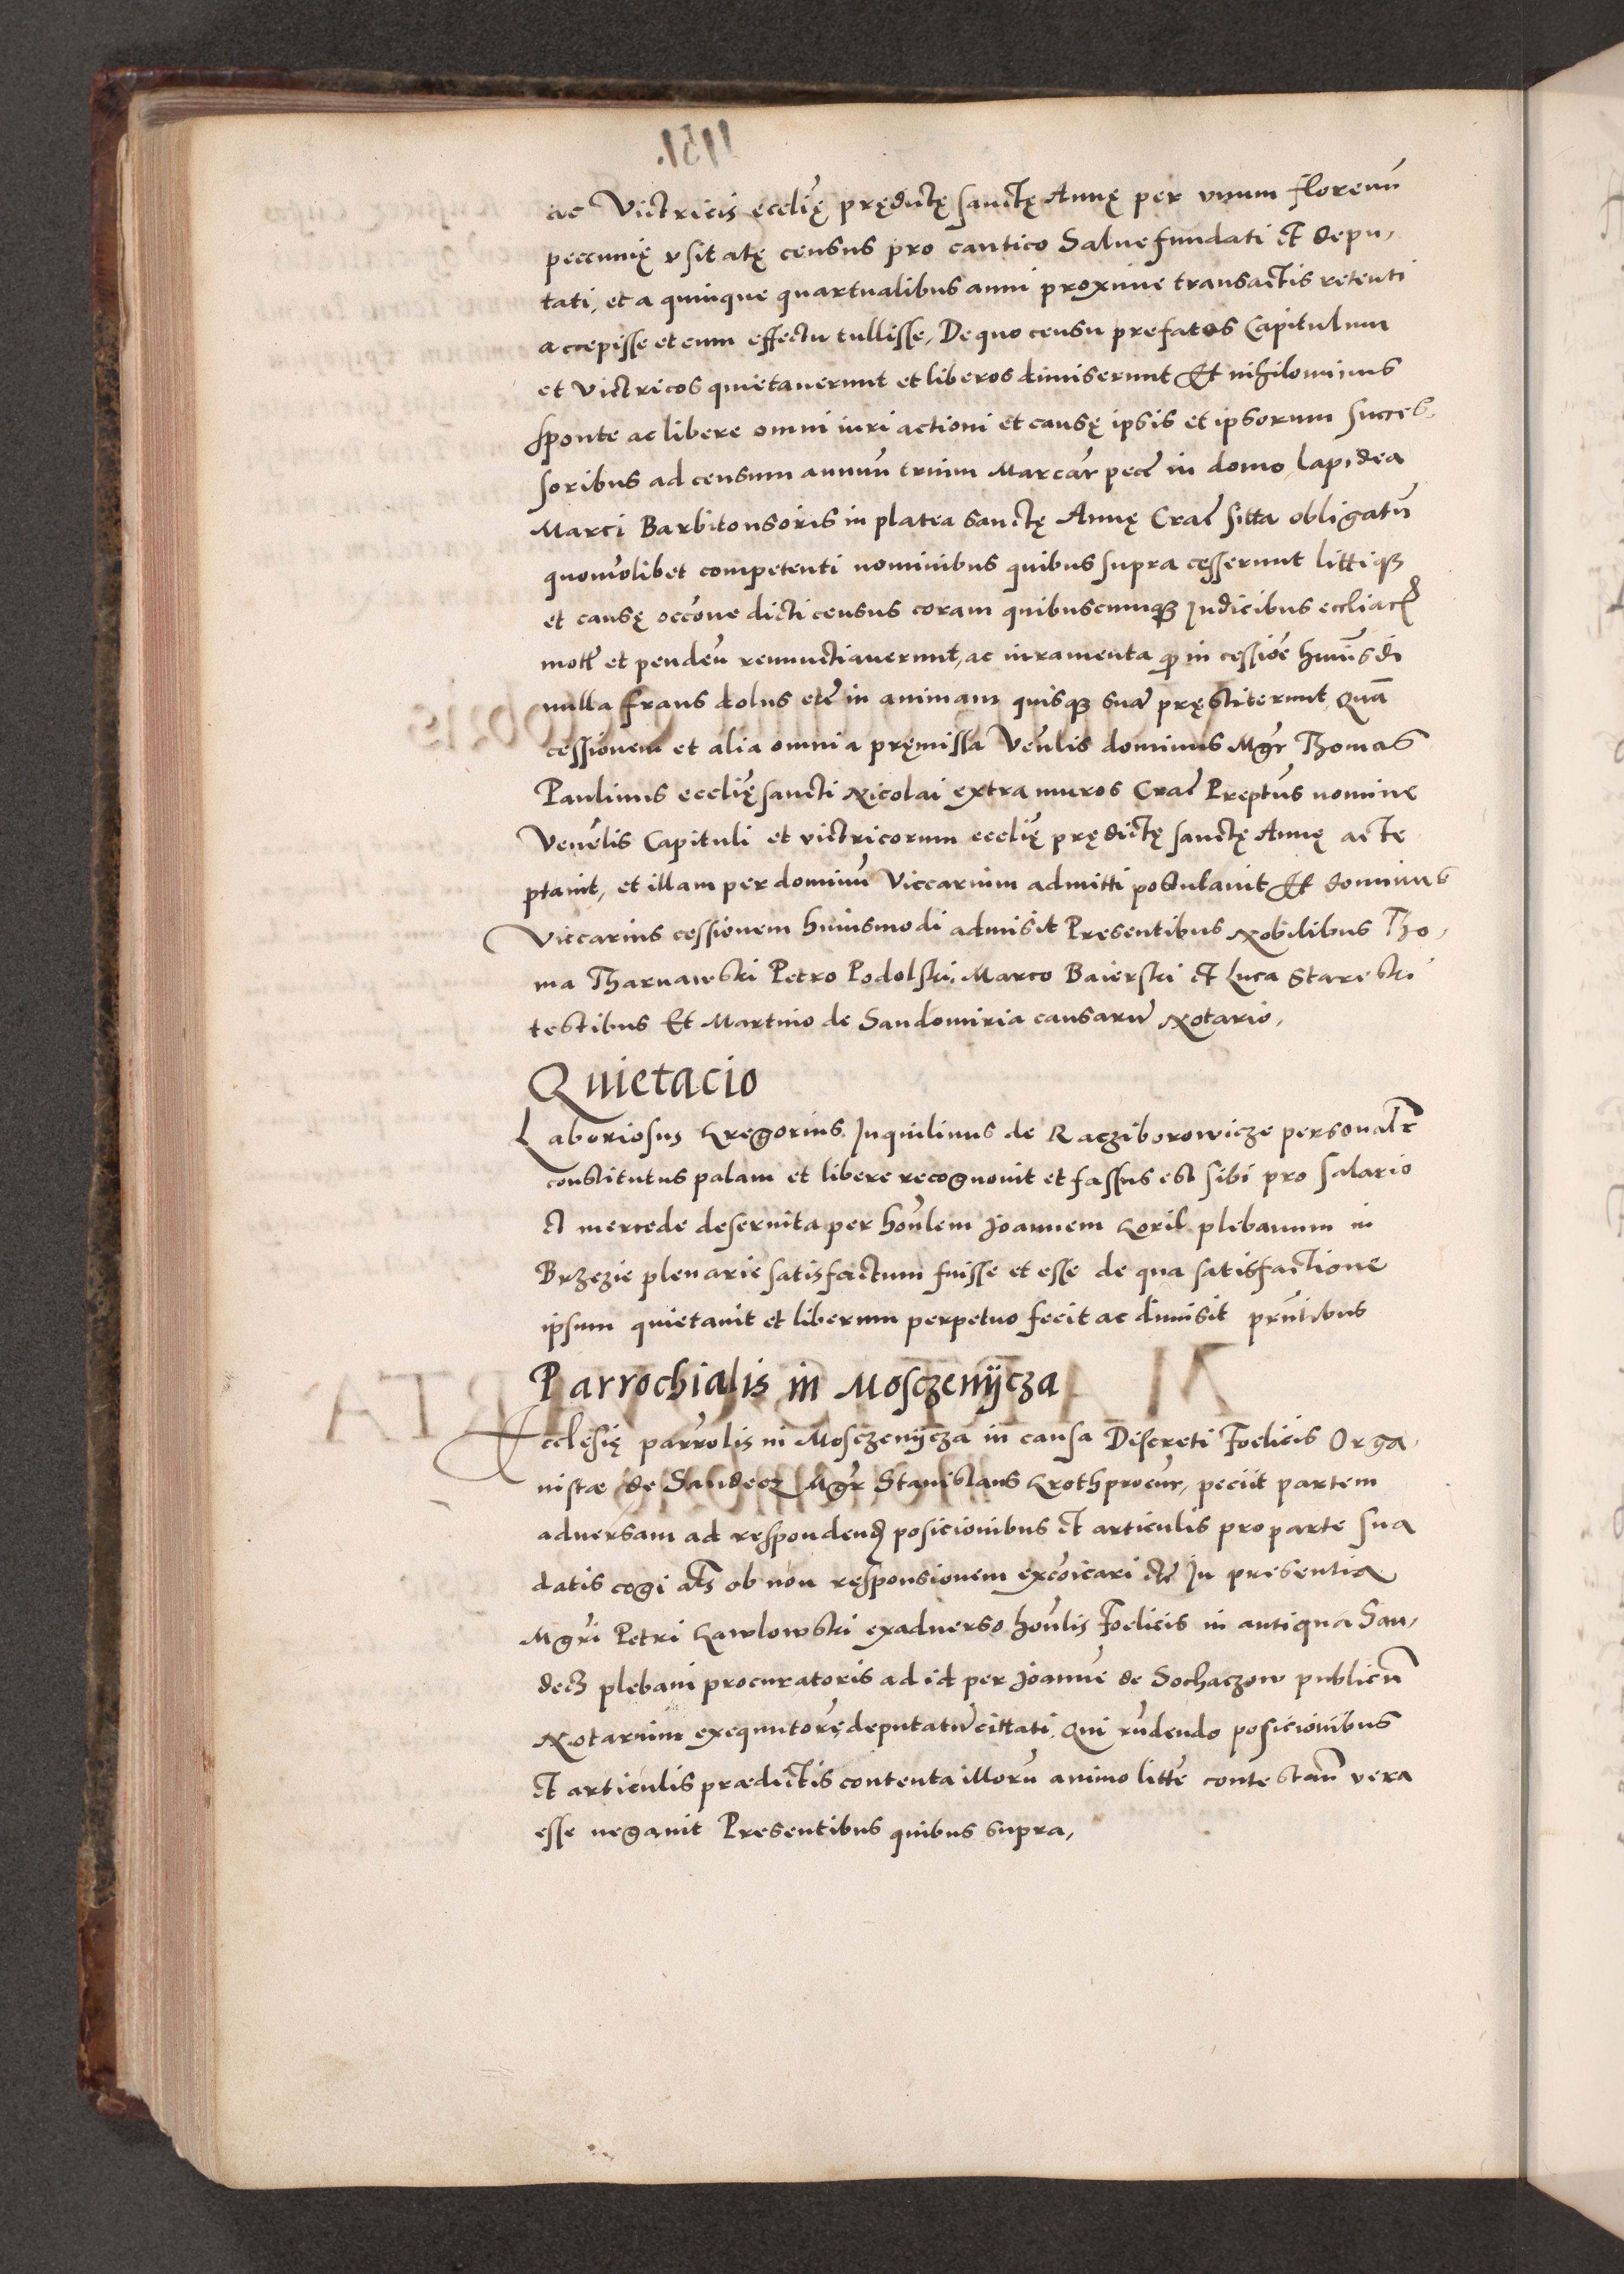 ac Victricis ecclię prędictę sanctę Annę per vnum florenũ
peccunię vsitatę census pro cantico Salue fundati et depu,
tati, et a quinque quartualibus anni proxime transactis retenti
accepisse et cum effectu tullisse, De quo censu prefatos Capitulum
et Victricos quietauerunt et liberos dimiserunt Et nihilominus
sponte ac libere omni iuri actioni et causę ipsis et ipsorum succes,
soribus ad censum annuũ trium Marcar̃ pecc̃ in domo lapidea
Marci Barbitonsoris in platea sanctę Annę Crac̃ sitta obligatũ
quomõlibet competenti nominibus quibus supra cesserunt littiqꝫ
et causę occõne dicti census coram quibuscumqꝫ Iudicibus eccliac̃
mott̃ et penden̄ renunctiauerunt, ac iuramenta ꝙ in cessiõe huiusdi
nulla fraus dolus etc̃ in animam quisqꝫ suã pręstiterunt, Quã
cessionem et alia omnia pręmissa Veñlis dominus Mgr̃ Thomas
Paulinus ecclię sancti Nicolai extra muros Crac̃ Preptũs nomine
Venẽlis Capituli et victricorum ecclię prędictę sanctę Annę acte
ptauit, et illam per dominũ Viccarium admitti postulauit Et dominus
Viccarius cessionem huiusmodi admisit Presentibus Nobilibus Tho,
ma Tharnawski Petro Podolski, Marco Baierski et Luca Stareski
testibus Et Martino de Sandomiria causarũ Notario,
Quietacio
Laboriosus Gregorius Inquilinus de Racziborowicze personalr̃
constitutus palam et libere recognouit et fassus est sibi pro salario
et mercede deseruita per hoñlem Joannem Goril plebanum in
Brzezie plenarie satisfactum fuisse et esse de qua satisfactione
ipsum quietauit et liberum perpetuo fecit ac dimisit prñtibus
Parrochialis in Mosczenijcza
Ecclesię parrolis in Mosczenijcza in causa Discreti Foelicis Orga,
nistæ de Sandecz Mgr̃ Stanislaus Groth procur̃, peciit partem
aduersam ad respondend posicionibus et articulis pro parte sua
datis cogi als̃ ob non responsionem excõicari etc̃ In presentia
Mgri Petri Gawlowski exaduerso hoñlis Foelicis in antiqua San,
decz plebani procuratoris ad id per Joannẽ de Sochaczow publicũ
Notarium exequutorẽ deputatũ cittati, Qui rñdendo posicionibus
et articulis prædictis contenta illorũ animo litt̃e contestan̄ vera
esse negauit Presentibus quibus supra,